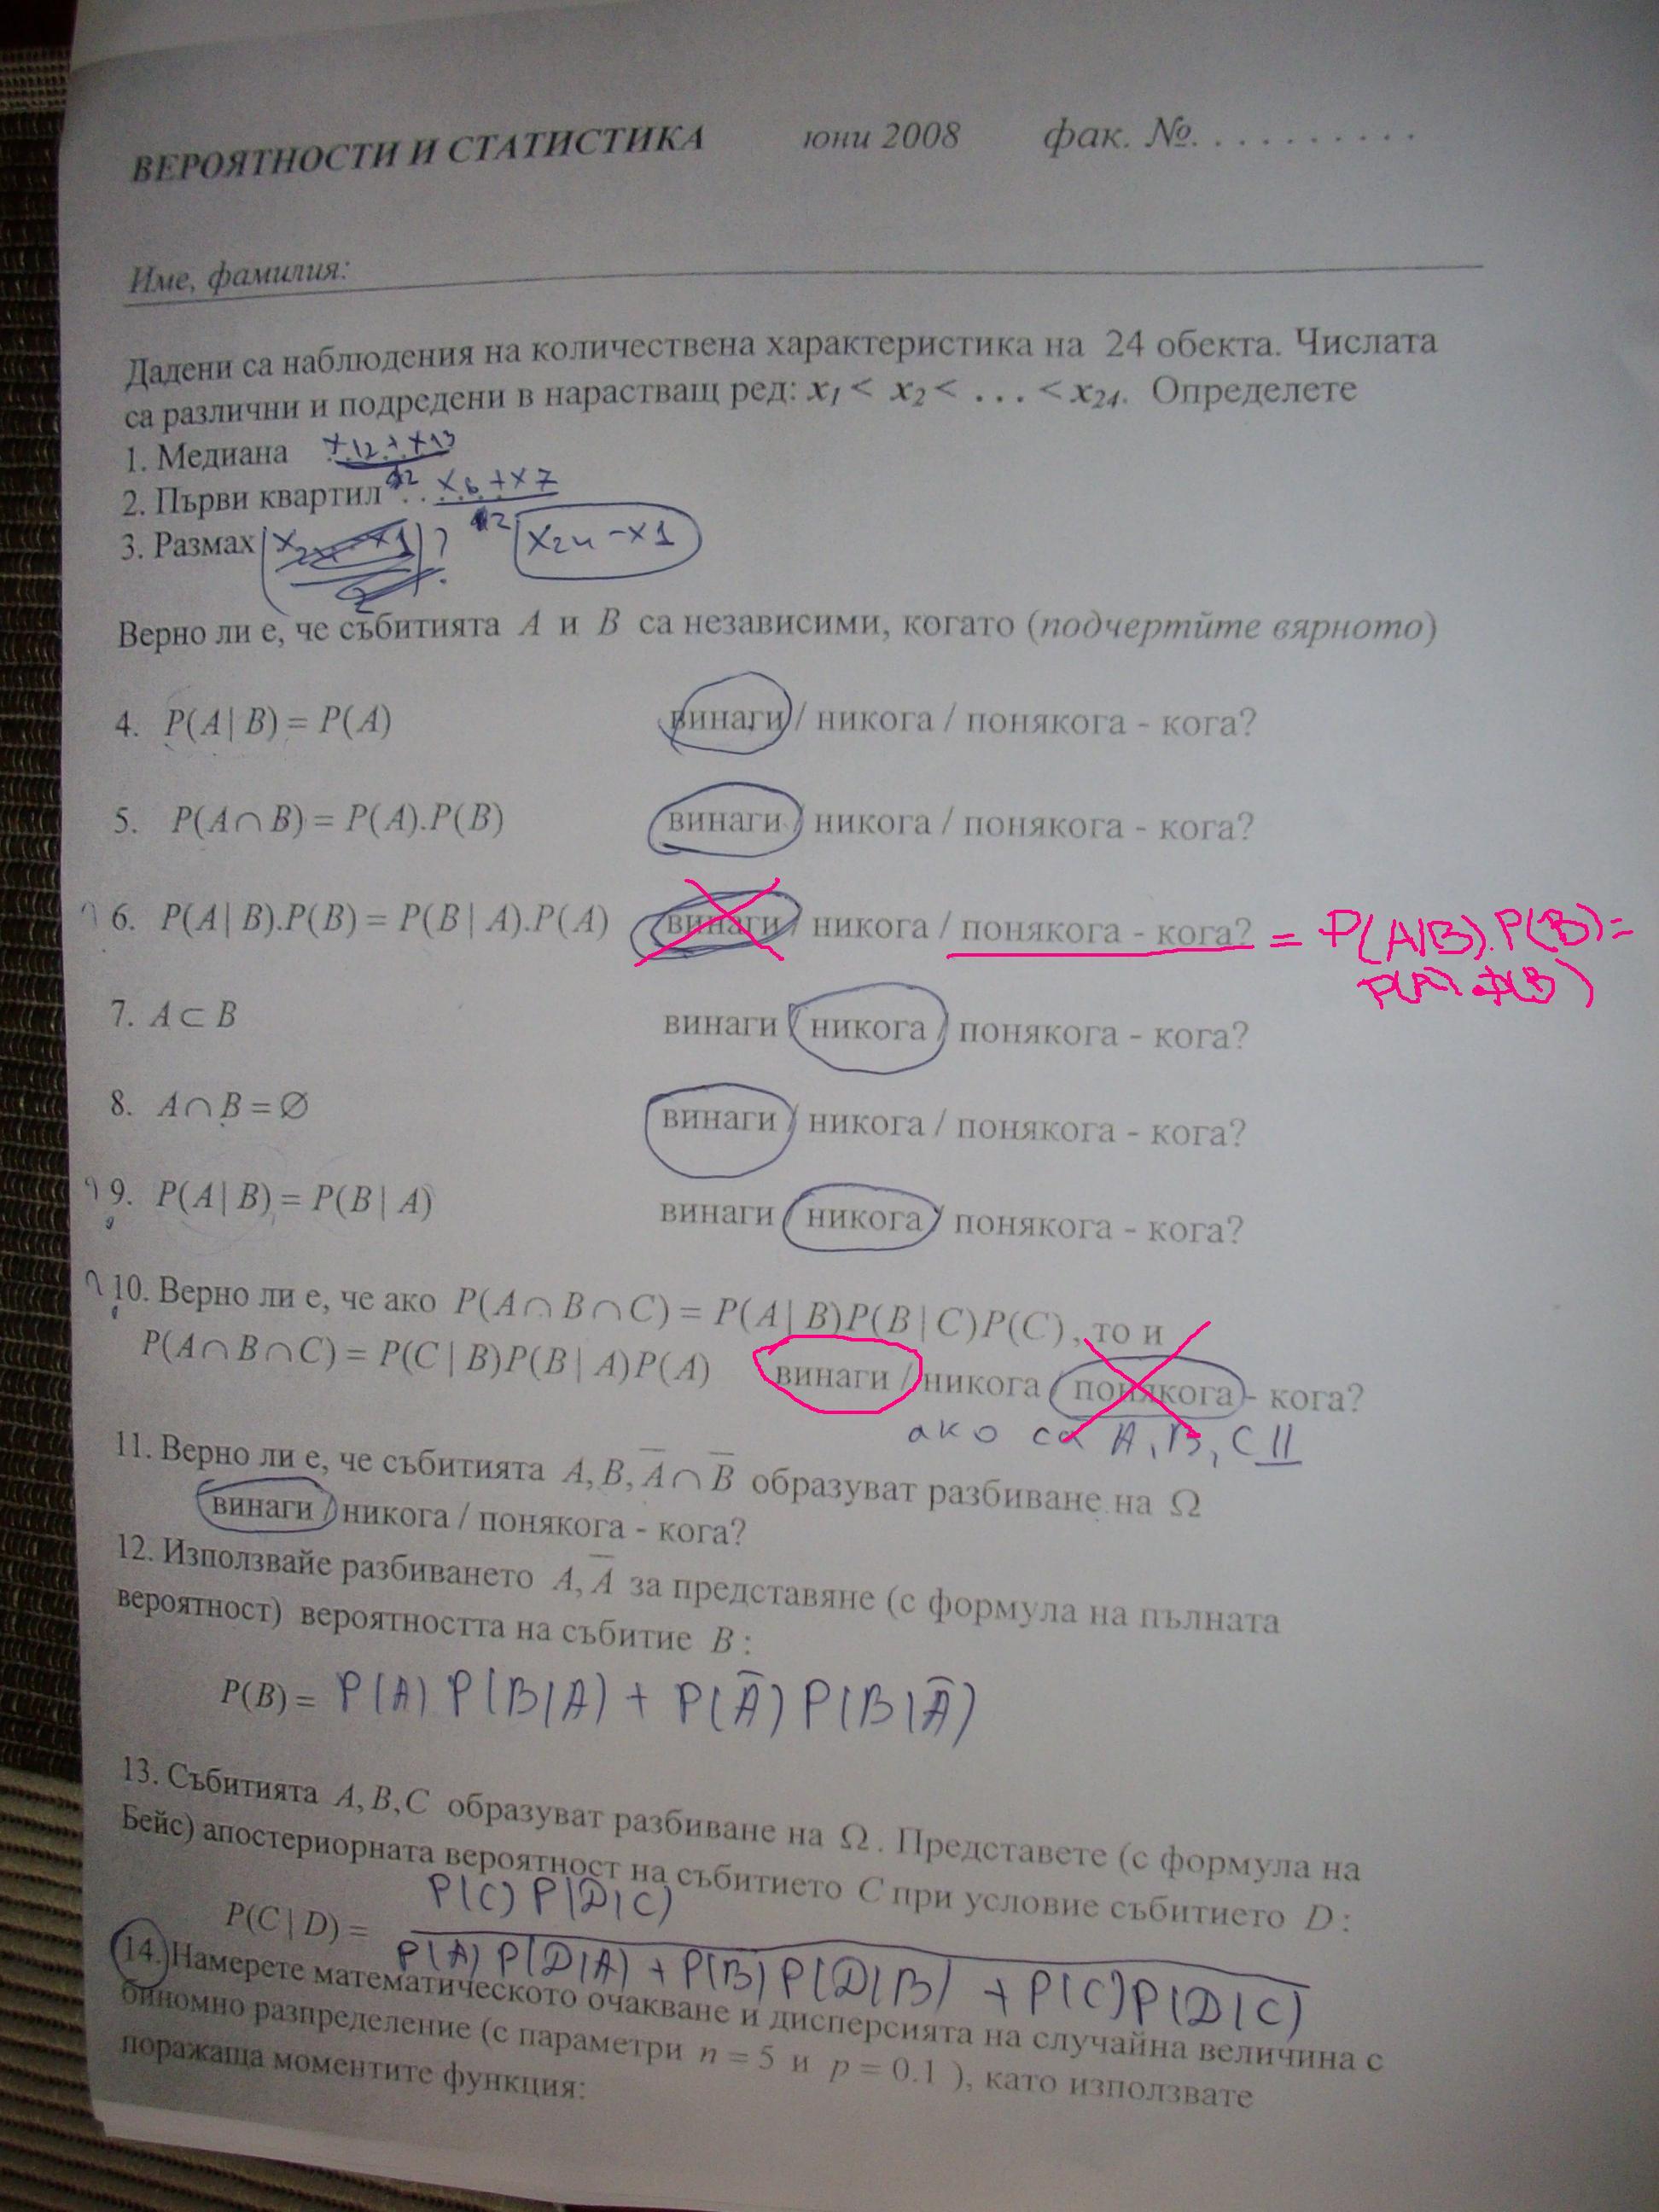 ВЕРОЯТНОСТИ И СТАТИСТИКА юни 2008 фак. №. . . . . . . . . .
Име, фамилия:
Дадени са наблюдения на количествена характеристика на 24 обекта. Числата
са различни и подредени в нарастващ ред: x₁ < x₂ < . . . < x₂₄. Определете
1. Медиана (x12 + x13)/2
2. Първи квартил (x6 + x7)/2
3. Размах ? x24 - x1
Верно ли е, че събитията A и B са независими, когато (подчертйте вярното)
4. P(A | B) = P(A) винаги / никога / понякога - кога?
5. P(A ∩ B) = P(A).P(B) винаги / никога / понякога - кога?
? 6. P(A | B).P(B) = P(B | A).P(A) винаги / никога / понякога - кога? = P(A/B).P(B) =
P(A).P(B)
7. A ⊂ B винаги / никога / понякога - кога?
8. A ∩ B = ∅ винаги / никога / понякога - кога?
? 9. P(A | B) = P(B | A) винаги / никога / понякога - кога?
? 10. Верно ли е, че ако P(A ∩ B ∩ C) = P(A | B)P(B | C)P(C), то и
P(A ∩ B ∩ C) = P(C | B)P(B | A)P(A) винаги / никога / понякога - кога?
ако са A, B, C ⫫
11. Верно ли е, че събитията A, B, A̅ ∩ B̅ образуват разбиване на Ω
винаги / никога / понякога - кога?
12. Използвайе разбиването A, A̅ за представяне (с формула на пълната
вероятност) вероятността на събитие B :
P(B) = P(A) P(B|A) + P(A̅) P(B|A̅)
13. Събитията A, B, C образуват разбиване на Ω. Представете (с формула на
Бейс) апостериорната вероятност на събитието C при условие събитието D :
P(C | D) = P(C) P(D|C)
P(A) P(D|A) + P(B) P(D|B) + P(C) P(D|C)
14. Намерете математическото очакване и дисперсията на случайна величина с
биномно разпределение (с параметри n = 5 и p = 0.1 ), като използвате
поражаща моментите функция: